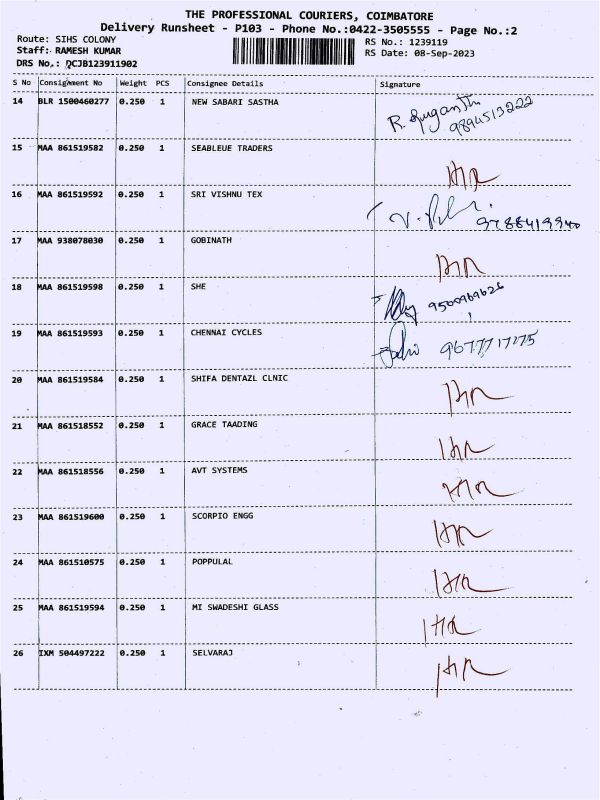 THE PROFESSIONAL COURIERS, COIMBATORE
Delivery Runsheet - P103 - Phone No.:0422-3505555 - Page No.:2
Route: SIHS COLONY
Staff: RAMESH KUMAR
DRS No.: DCJB123911902
RS No.: 1239119
RS Date: 08-Sep-2023
S No Consignment No Weight PCS Consignee Details Signature
14 BLR 1500460277 0.250 1 NEW SABARI SASTHA
9894513222
15 MAA 861519582 0.250 1 SEABLEUE TRADERS
16 MAA 861519592 0.250 1 SRI VISHNU TEX
9788419940
17 MAA 938078030 0.250 1 GOBINATH
18 MAA 861519598 0.250 1 SHE
9500969626
19 MAA 861519593 0.250 1 CHENNAI CYCLES
9677717175
20 MAA 861519584 0.250 1 SHIFA DENTAZL CLNIC
21 MAA 861518552 0.250 1 GRACE TAADING
22 MAA 861518556 0.250 1 AVT SYSTEMS
23 MAA 861519600 0.250 1 SCORPIO ENGG
24 MAA 861510575 0.250 1 POPPULAL
25 MAA 861519594 0.250 1 MI SWADESHI GLASS
26 IXM 504497222 0.250 1 SELVARAJ